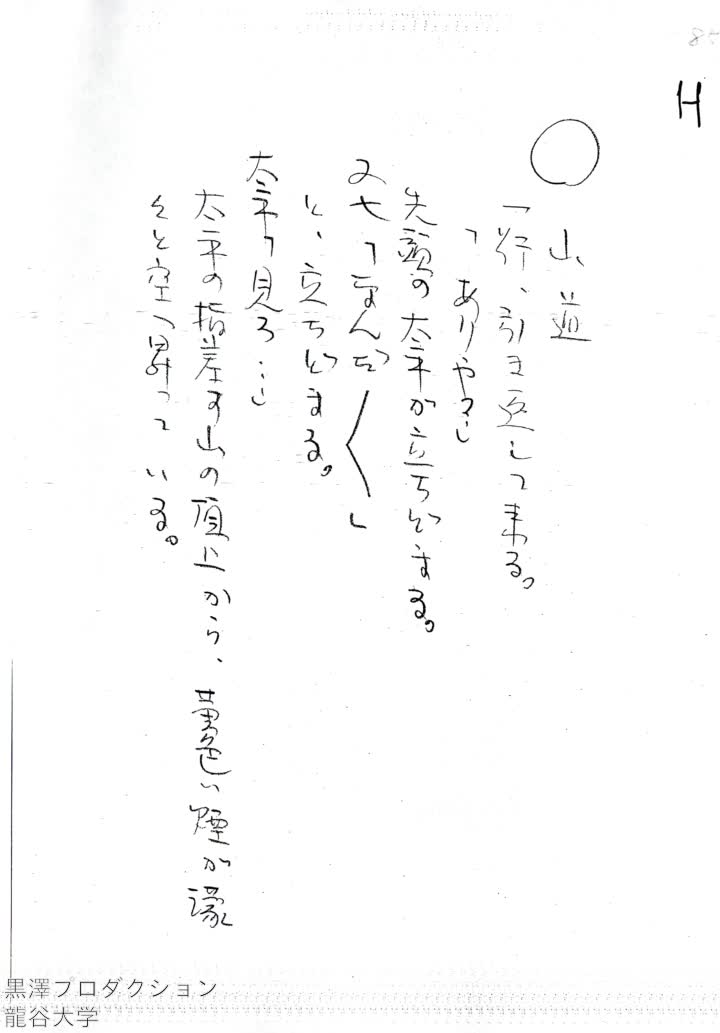 85
H
○ 山道
一行、引き返して来る。
「ありやァ」
先頭の太平が立ちどまる。
又七「なんだ〱」
と、立ちどまる。
太平「見ろ…」
太平の指差す山の頂上から、黄色い煙が濛
々と空へ昇っている。
黒澤プロダクション
龍谷大学